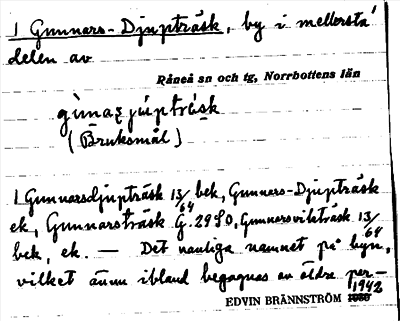 1 Gunnars-Djupträsk, by i mellersta
delen av
Råneå sn och tg, Norrbottens län
(Bruksmål)
1 Gunnarsdjupträsk 13/64 bek, Gunnars-Djupträsk
ek, Gunnarsträsk G. 2950, Gunnarsvikträsk 13/64
bek, ek. — Det vanliga namnet på byn,
vilket ännu ibland begagnas av äldre per-
1942
EDVIN BRÄNNSTRÖM